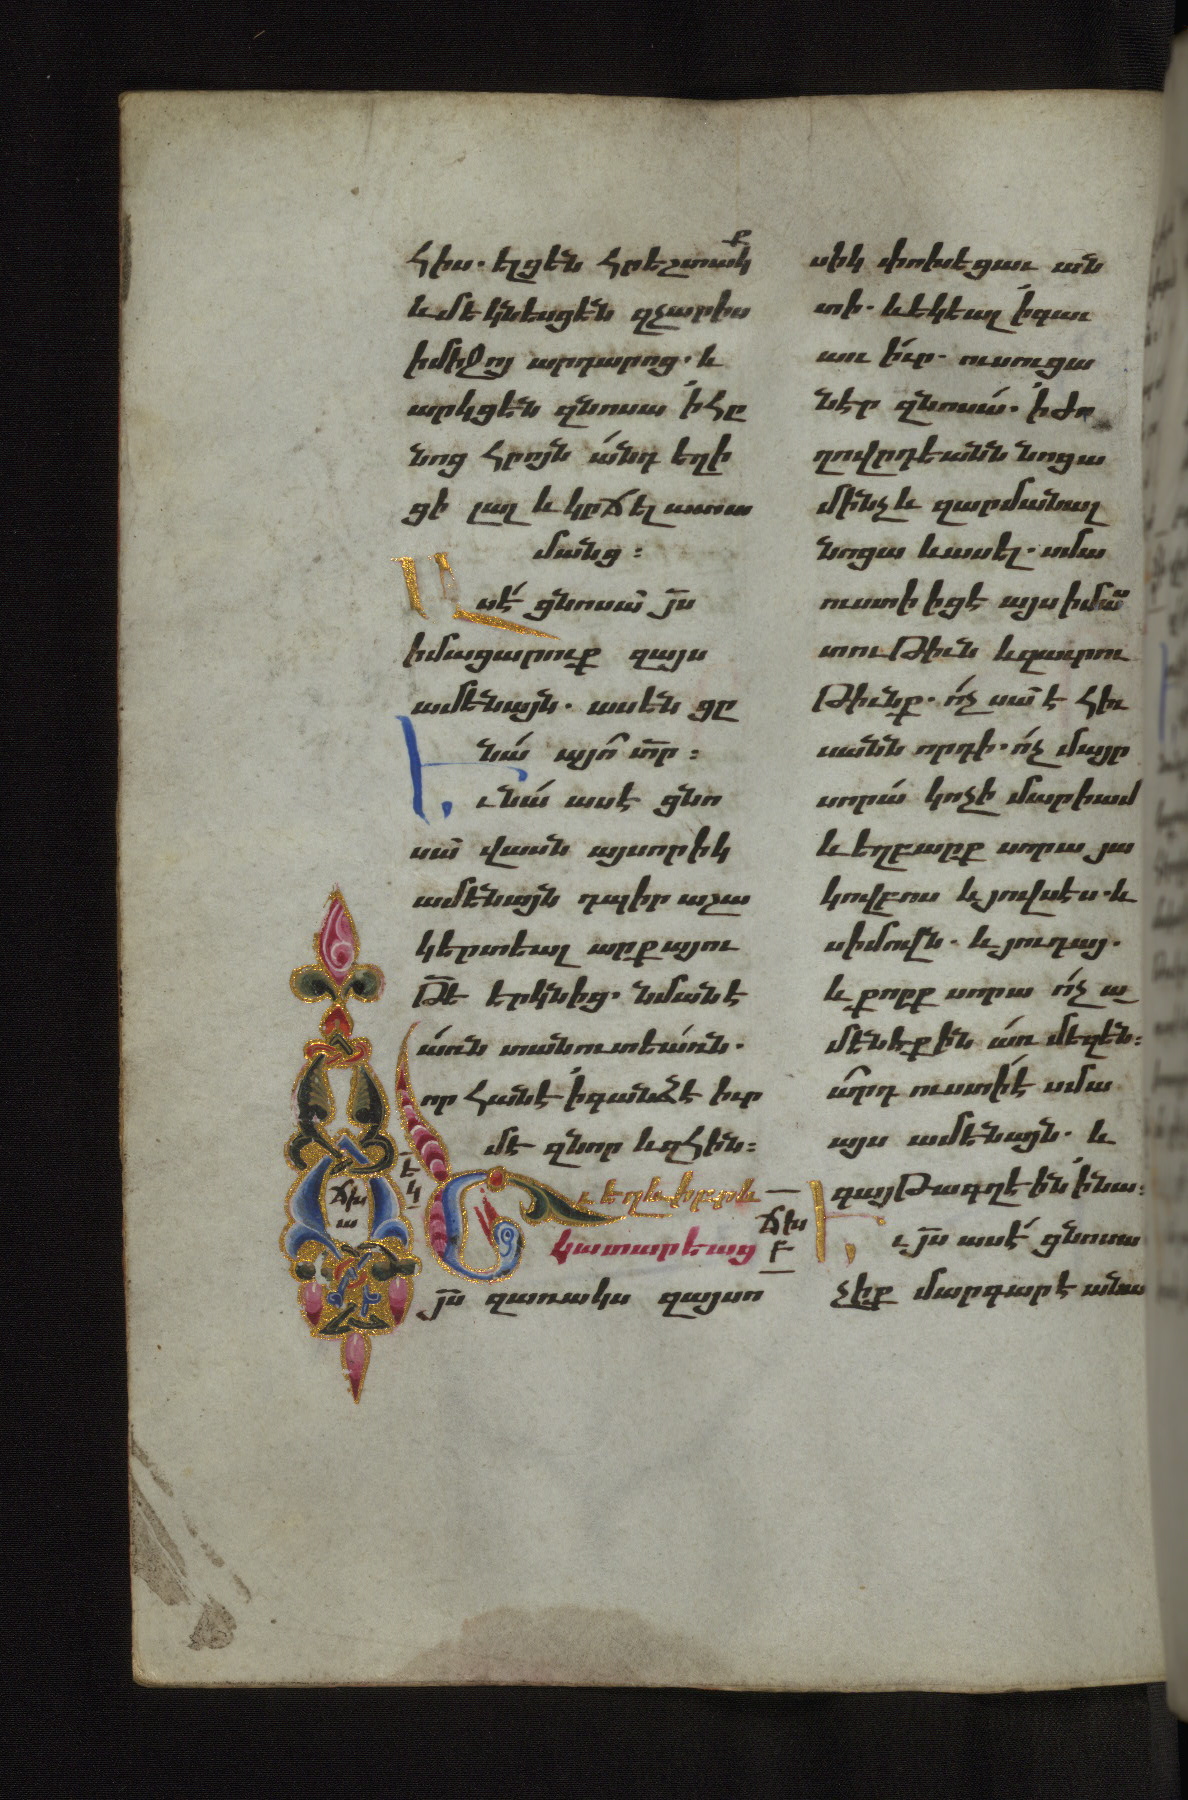 հիս. ելցեն հրեշտակք
և մեկնեսցեն զչարիս
ի միջոյ արդարոց. և
արկցեն զնոսա ի հը
նոց հրոյն անդ եղի
ցի լալ և կրճել ատա
մանց:
Ասէ ցնոսա յս
իմացարուք զայս
ամենայն. ասեն ցը
նա այո տր:
Եւ նա ասէ ցնո
սա վասն այսորիկ
ամենայն դպիր աշա
կերտեալ արքայու
թե երկնից. նման է
առն տանուտեառն.
որ հանէ ի գանձէ իւր
մէ զնոր և զհին:
Եւ եղև իբրև
կատարեաց
յս զառակս զայսո
սիկ փոխեցաւ ան
տի. և եկեալ ի գաւ
առ իւր. ուսուցա
նէր զնոսա. ի ժո
ղովրդեանն նոցա
մինչև զարմանալ
նոցա և ասել. սմա
ուստի իցէ այս իմաս
տութիւն և զաւրու
թիւնք. ոչ սա է հիւ
սանն որդի. ոչ մայր
սորա կոչի մարիամ
և եղբարք սորա յա
կովբոս և յովսէս. և
սիմովն. և յուդայ.
և քորք սորա ոչ ա
մենեքին առ մեզ են:
արդ ուստի է սմա
այս ամենայն. և
գայթագղէին ի նա:
Եւ յս ասէ ցնոսա
չիք մարգարէ անա
ճխ
ա
է
կ
ճխ
բ